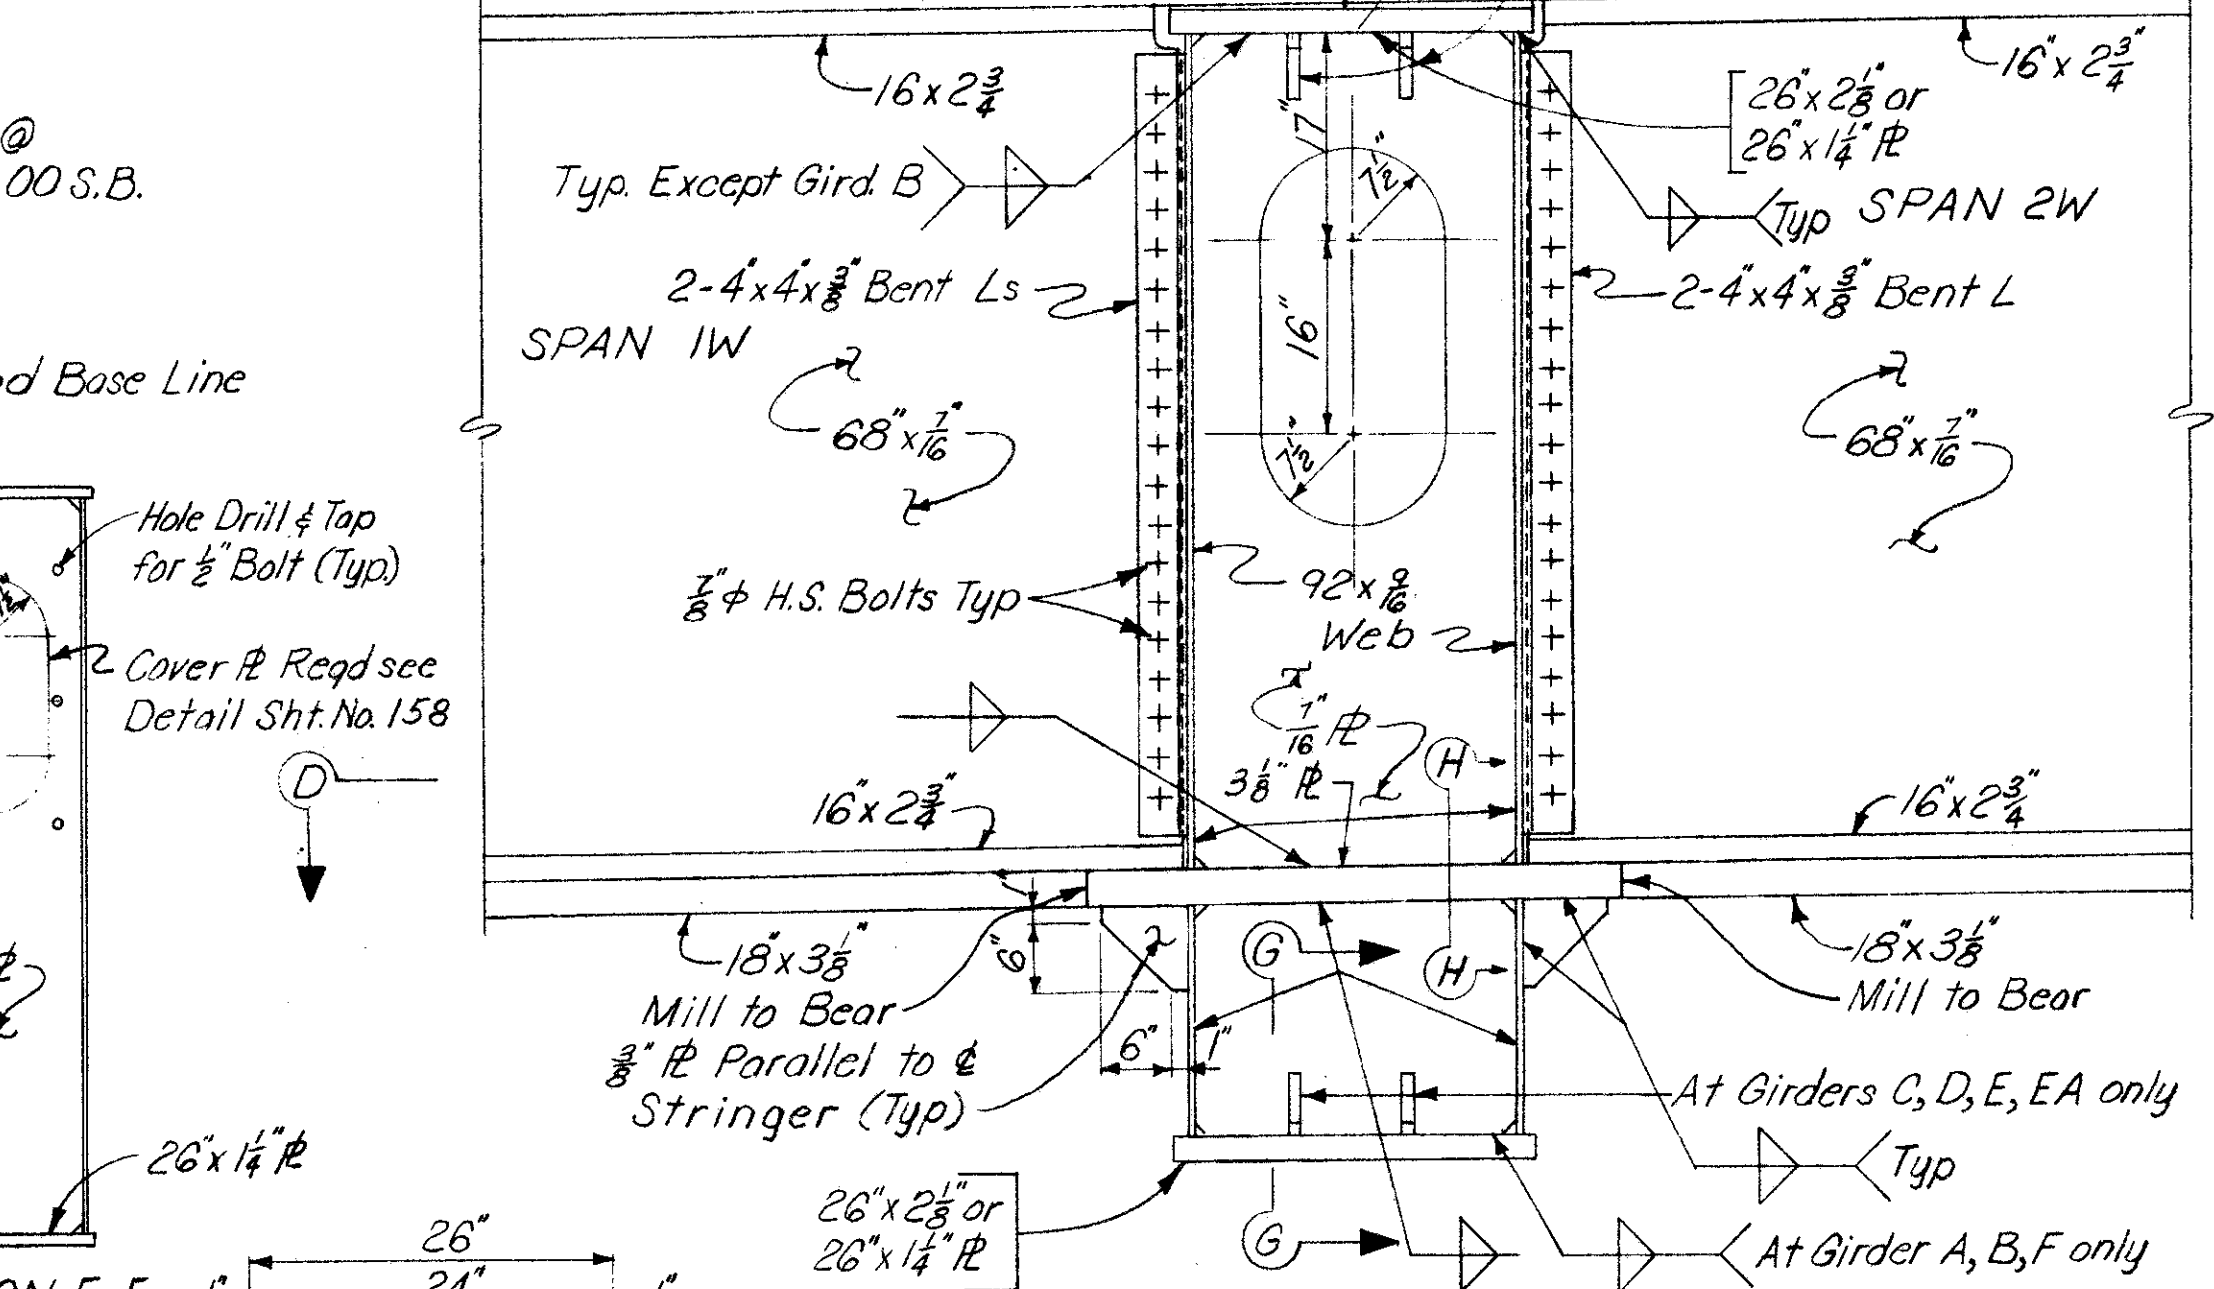 @
00 S.B.
d Base Line
Hole Drill & Tap
for 1/2" Bolt (Typ.)
Cover ℙL Reqd see
Detail Sht. No. 158
D
26" x 1 1/4" ℙL
26"
24"
16 x 2 3/4
Typ. Except Gird. B
2-4"x4"x3/8" Bent Ls
SPAN 1W
68" x 7/16"
7/8" φ H.S. Bolts Typ
16" x 2 3/4"
18" x 3 1/8"
Mill to Bear
3/8" ℙL Parallel to ℄
Stringer (Typ)
6"
6"
1"
26" x 2 1/8" or
26" x 1 1/4" ℙL
17"
7 1/2"
16"
7 1/2"
92 x 9/16
Web
7/16" ℙL
3 1/8" ℙL
H
G
H
G
16" x 2 3/4"
26" x 2 1/8" or
26" x 1 1/4" ℙL
Typ
SPAN 2W
2-4"x4"x3/8" Bent L
68" x 7/16"
16" x 2 3/4"
18" x 3 1/8"
Mill to Bear
At Girders C, D, E, EA only
Typ
At Girder A, B, F only